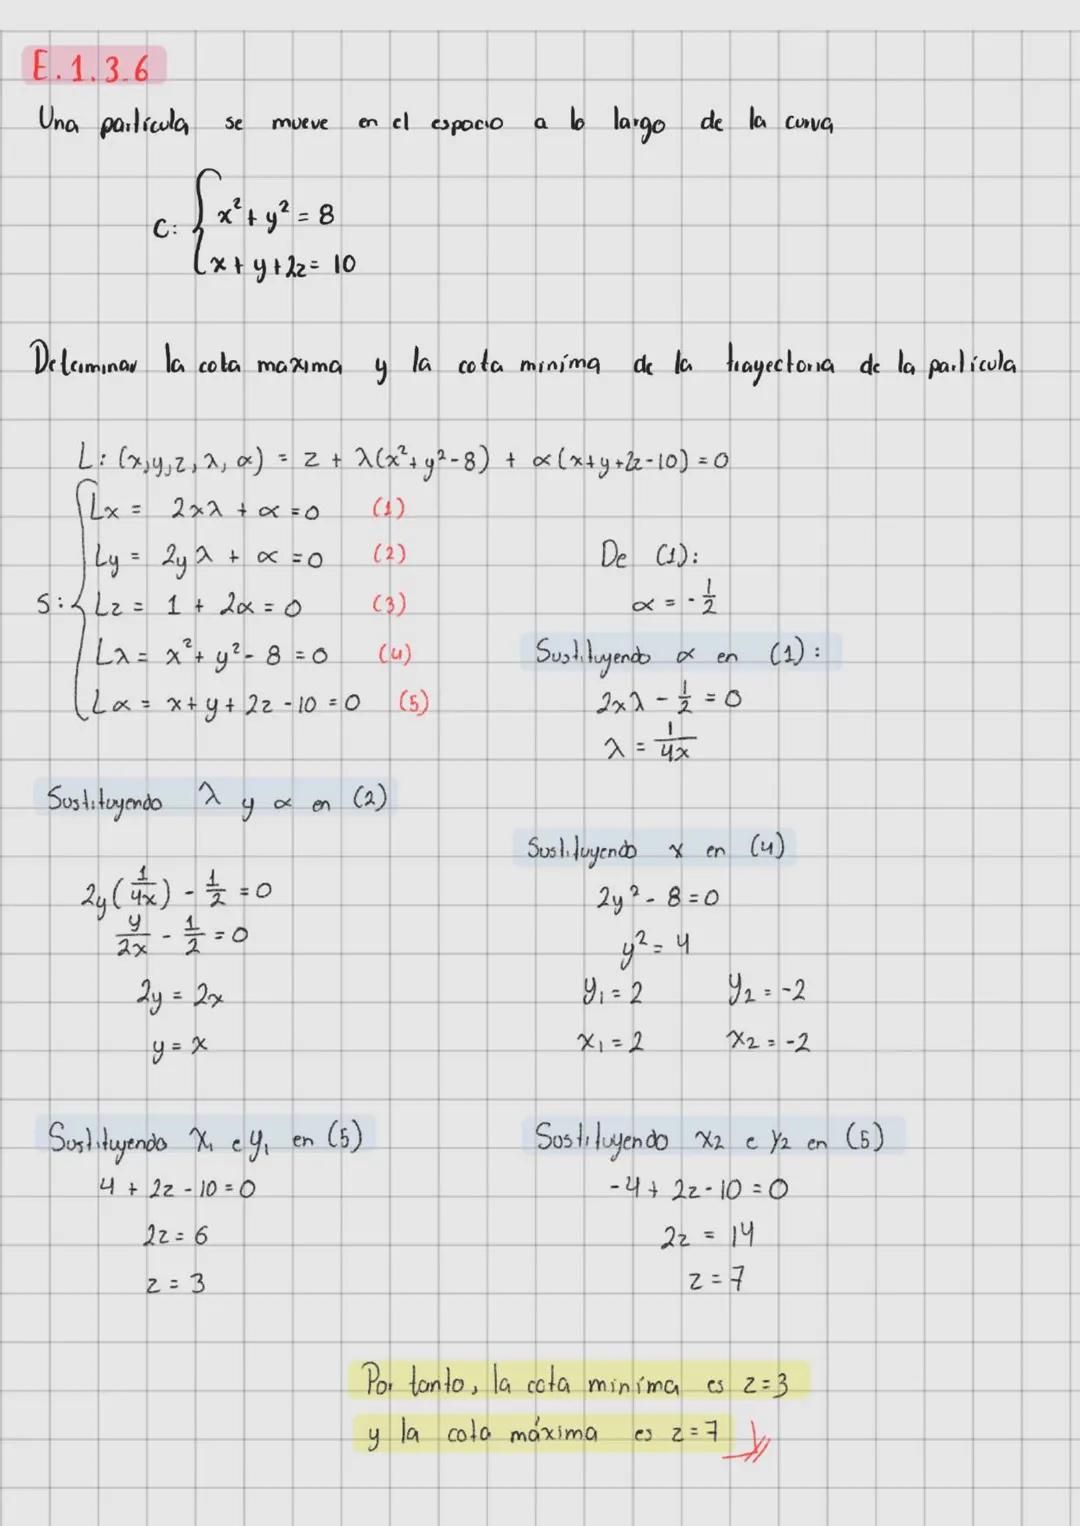 E.1.3.6
Una partícula se mueve en el espacio a lo largo de la curva
C: { x² + y² = 8
x + y + 2z = 10
Determinar la cota maxima y la cota mínima de la trayectoria de la partícula
L: (x,y,z,λ,α) = z + λ(x²+y²-8) + α(x+y+2z-10) = 0
S: { Lx = 2xλ + α = 0 (1)
Ly = 2yλ + α = 0 (2)
Lz = 1 + 2α = 0 (3)
Lλ = x² + y² - 8 = 0 (4)
Lα = x + y + 2z - 10 = 0 (5)
De (1):
α = -1/2
Sustituyendo α en (1):
2xλ - 1/2 = 0
λ = 1/4x
Sustituyendo λ y α en (2)
2y(1/4x) - 1/2 = 0
y/2x - 1/2 = 0
2y = 2x
y = x
Sustituyendo x en (4)
2y² - 8 = 0
y² = 4
y₁ = 2 y₂ = -2
x₁ = 2 x₂ = -2
Sustituyendo x₁ e y₁ en (5)
4 + 2z - 10 = 0
2z = 6
z = 3
Sustituyendo x₂ e y₂ en (5)
-4 + 2z - 10 = 0
2z = 14
z = 7
Por tanto, la cota mínima es z = 3
y la cota máxima es z = 7